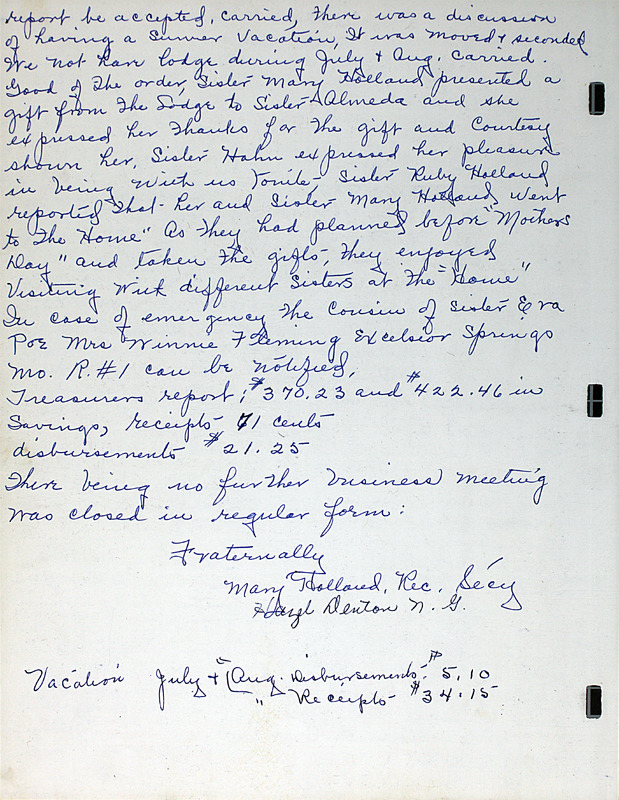 report be accepted, carried, there was a discussion
of having a Sumer Vacation, It was moved & seconded
We not have lodge during July & Aug. Carried.
Good of the order, Sister Mary Holland presented a
gift from the Lodge to Sister Almeda and she
expressed her thanks for the gift and Courtesy
shown her, Sister Hahn expressed her pleasure
in being with us Tonite, Sister Ruby Holland
reported that her and Sister Mary Holland, went
to the Home" As they had planned before "Mothers
Day" and taken the gifts, they enjoyed
Visiting with different Sisters at the "Home"
In case of emergency the Cousin of Sister Eva
Poe Mrs Winnie Fleming Excelsior Springs
Mo. R.#1 can be notified,
Treasurers report; $370.23 and $422.46 in
Savings, receipts 71 cents
disbursements $21.25
There being no further business meeting
was closed in regular form:
Fraternally
Mary Holland, Rec, Sécy
Hazel Denton N. G.
Vacation July & (Aug. Disbursements. $5.10
" Receipts $34.15